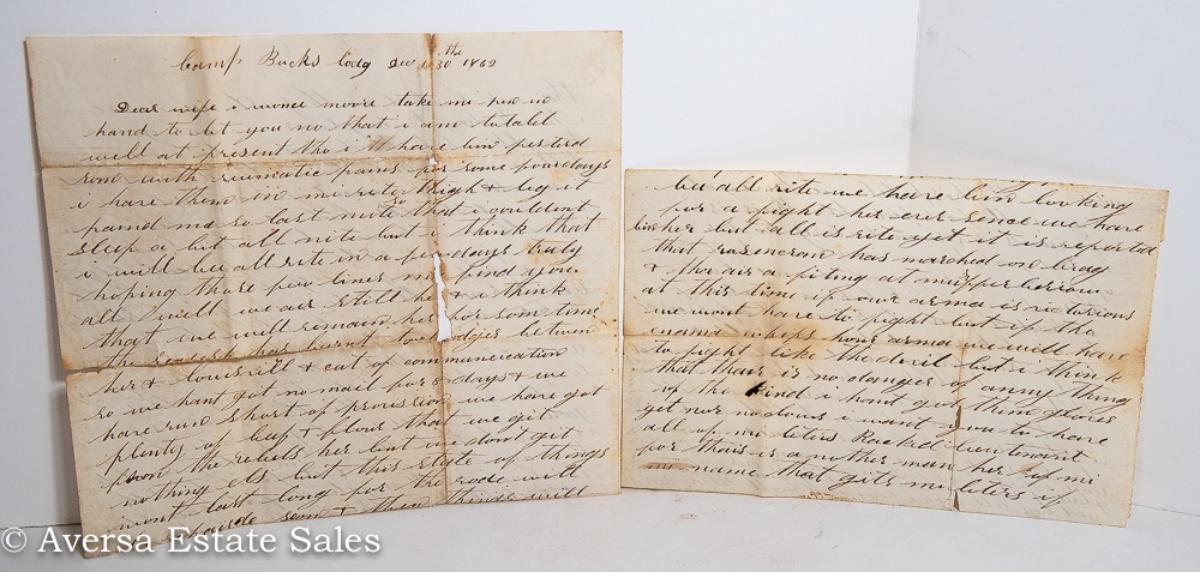 Camp Bucks lodg Dec 30th 1862
Dear wife i wonce moore take mi pen in
hand to let you no that i am tutalel
well at present tho i'll have bin pesterd
som with rumatic pains for some fourdays
i have them in mi rite thigh & leg it
paind me so last nite that i couldnt
sleep a bit all nite but i think that
i will bee all rite in a fiew days truly
hoping those few lines ma find you
all well we air still her & i think
that we will remain her for some time
the sesesh has burnt too bridges between
her & Louisvill & cut of communication
so we hant got no mail for 8 days & we
have run short of provision we have got
plenty of beef & flour that we git
from the rebels her but we don't git
nothing els but this state of things
wont last long for the rode will
be repairde soon & then things will
bee all rite we have bin looking
for a fight her ever sence we have
bin her but all is rite yet it is reported
that rosencran has marched on brag
& tha air a fiting at murfferborrow
at this time if our arma is victorious
we wont have to fight but if the
enama whips hour arma we will have
to fight like the devil but i think
that thair is no danger of anny thing
of the kind i hant got them gloves
yet nor no dous i want you to have
all of mi leters Backed lieutenant
for thair is a nother man her of mi
name that gits mi leters if
© Aversa Estate Sales